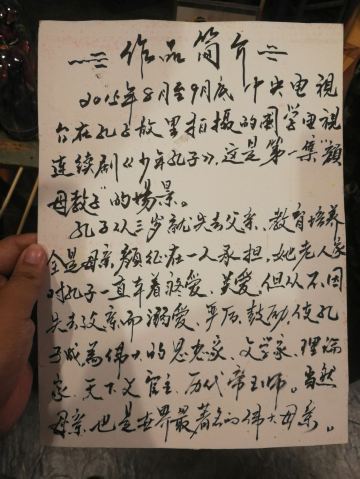 作品简介
2015年8月至9月底 中央电视
台在孔子故里拍摄的国学电视
连续剧《少年孔子》，这是第一集"颜
母教子"的场景。
孔子从三岁就失去父亲、教育培养
全是母亲颜征在一人承担，她老人家
对孔子一直牵着疼爱、关爱，但从不因
失去父亲而溺爱、严厉、鼓励，使孔
子成为伟大的思想家、文学家、理论
家、天下文官主、历代帝王师。当然
母亲也是世界最著名的伟大母亲。